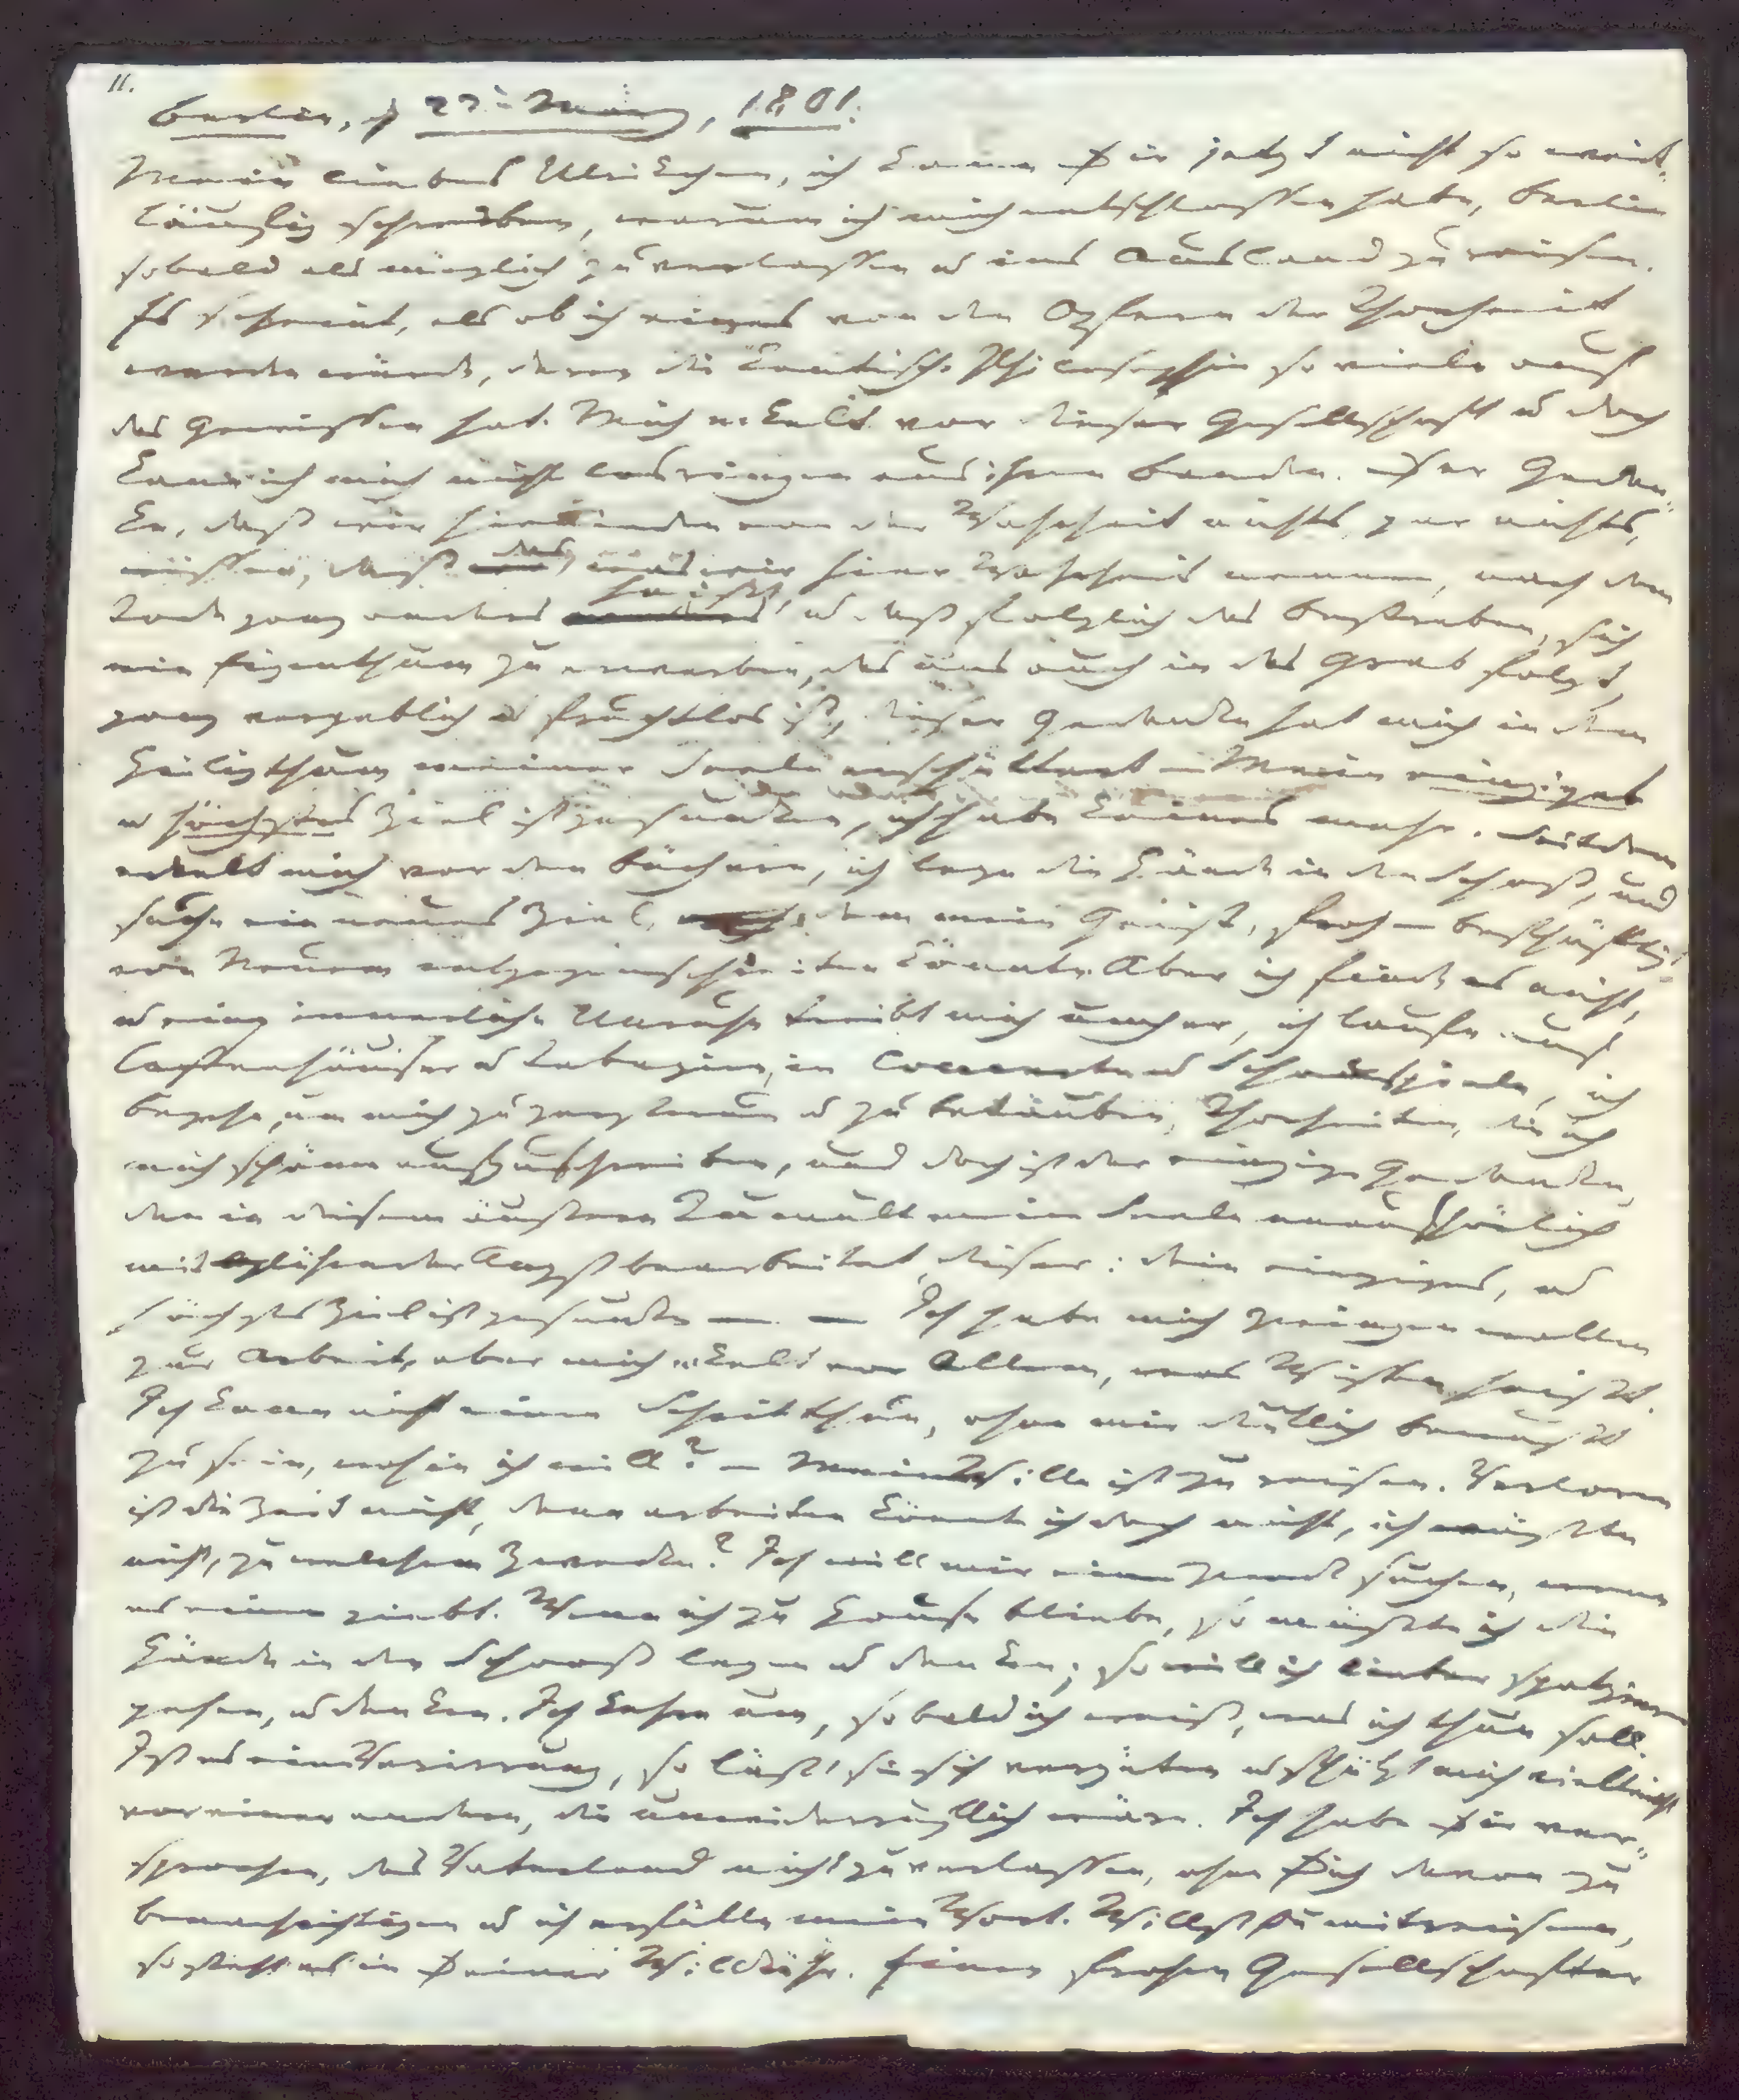 11.
Berlin, d 23t März, 1801.
Mein liebes Ulrikchen, ich kann Dir jetzt nicht so weit-
läufig schreiben, warum ich mich entschlossen habe, Berlin
sobald als möglich zu verlassen u ins Ausland zu reisen.
Es scheint, als ob ich eines von den Opfern der Thorheit
werden würde, deren die Kantische Philosophie so viele auf
das Gewissen hat. Mich ekelt vor dieser Gesellschaft u doch
kann ich mich nicht losringen aus ihren Banden. Der Gedan-
ke, daß wir hienieden von der Wahrheit nichts, gar nichts,
wissen, daß das, was wir hier Wahrheit nennen, nach dem
Tode ganz anders heißt, u daß folglich das Bestreben, sich
ein Eigenthum zu erwerben, das uns auch in das Grab folgt,
ganz vergeblich u fruchtlos ist, dieser Gedanke hat mich in dem
Heiligthum meiner Seele erschüttert – Mein einziges
u höchstes Ziel ist gesunken, ich habe keines mehr. Seitdem
ekelt mich vor den Büchern, ich lege die Hände in den Schooß, und
suche ein neues Ziel, dem mein Geist, froh-beschäftigt,
von Neuem entgegenschreiten könnte. Aber ich finde es nicht,
u eine innerliche Unruhe treibt mich umher, ich laufe auf
Caffeehäuser u Tabagien, in Concerte u Schauspiele, ich
begehe, um mich zu zerstreuen u zu betäuben, Thorheiten, die ich
mich schäme aufzuschreiben, und doch ist der einzige Gedanke,
den in diesem äußern Tumult meine Seele unaufhörlich
mit glühender Angst bearbeitet, dieser: dein einziges, u
höchstes Ziel ist gesunken — — Ich habe mich zwingen wollen
zur Arbeit, aber mich ekelt vor Allem, was Wissen heißt.
Ich kann nicht einen Schritt thun, ohne mir deutlich bewußt
zu sein, wohin ich will? – Mein Wille ist zu reisen. Verloren
ist die Zeit nicht, denn arbeiten könnte ich doch nicht, ich wüßte
nicht, zu welchem Zwecke? Ich will mir einen Zweck suchen, wenn
es einen giebt. Wenn ich zu Hause bliebe, so müßte ich die
Hände in den Schooß legen u denken; so will ich lieber spatzieren
gehen, u denken. Ich kehre um, sobald ich weiß, was ich thun soll.
Ist es eine Verirrung, so läßt sie sich vergüten u schützt mich vielleicht
vor einer andern, die unwiderruflich wäre. Ich habe Dir ver-
sprochen, das Vaterland nicht zu verlassen, ohne Dich davon zu
benachrichtigen u ich erfülle mein Wort. Willst Du mitreisen,
so steht es in Deiner Willkühr. Einen frohen Gesellschafter